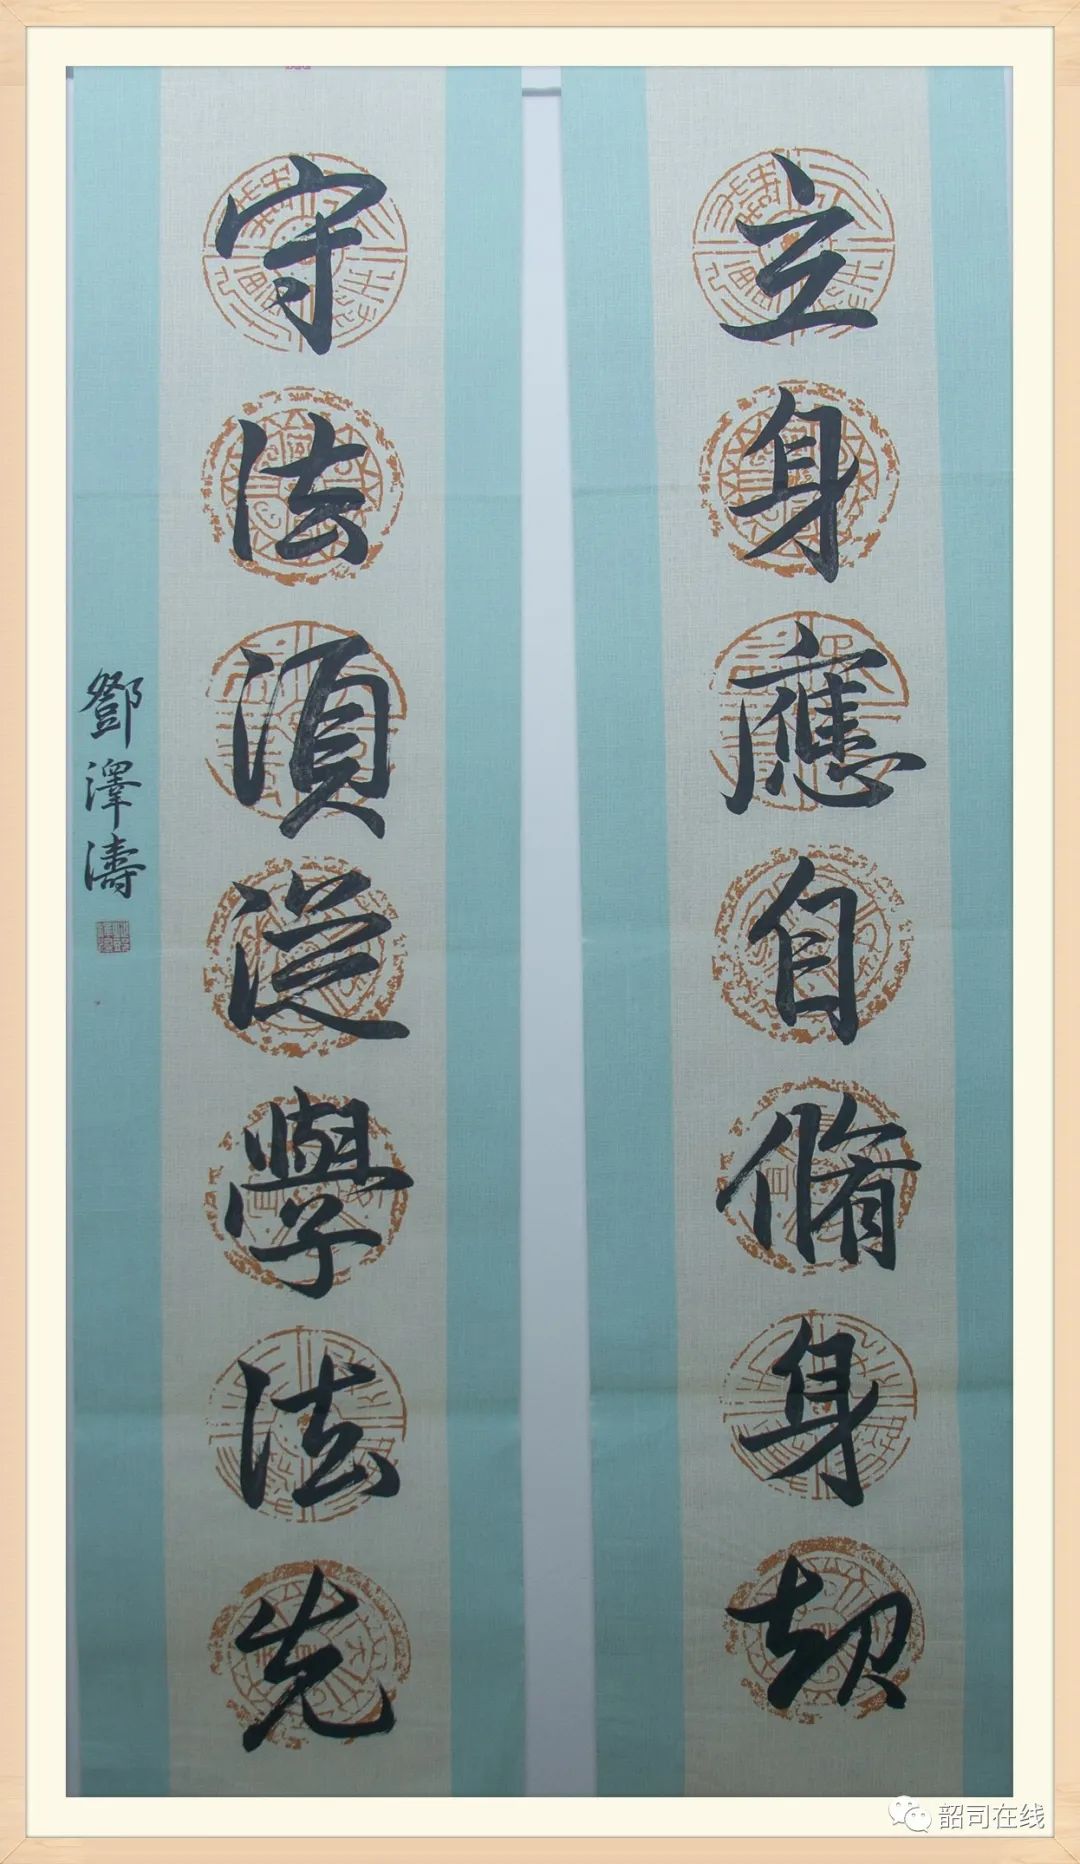 立身應自脩身起
守法須從學法先
鄧澤濤
韶司在线